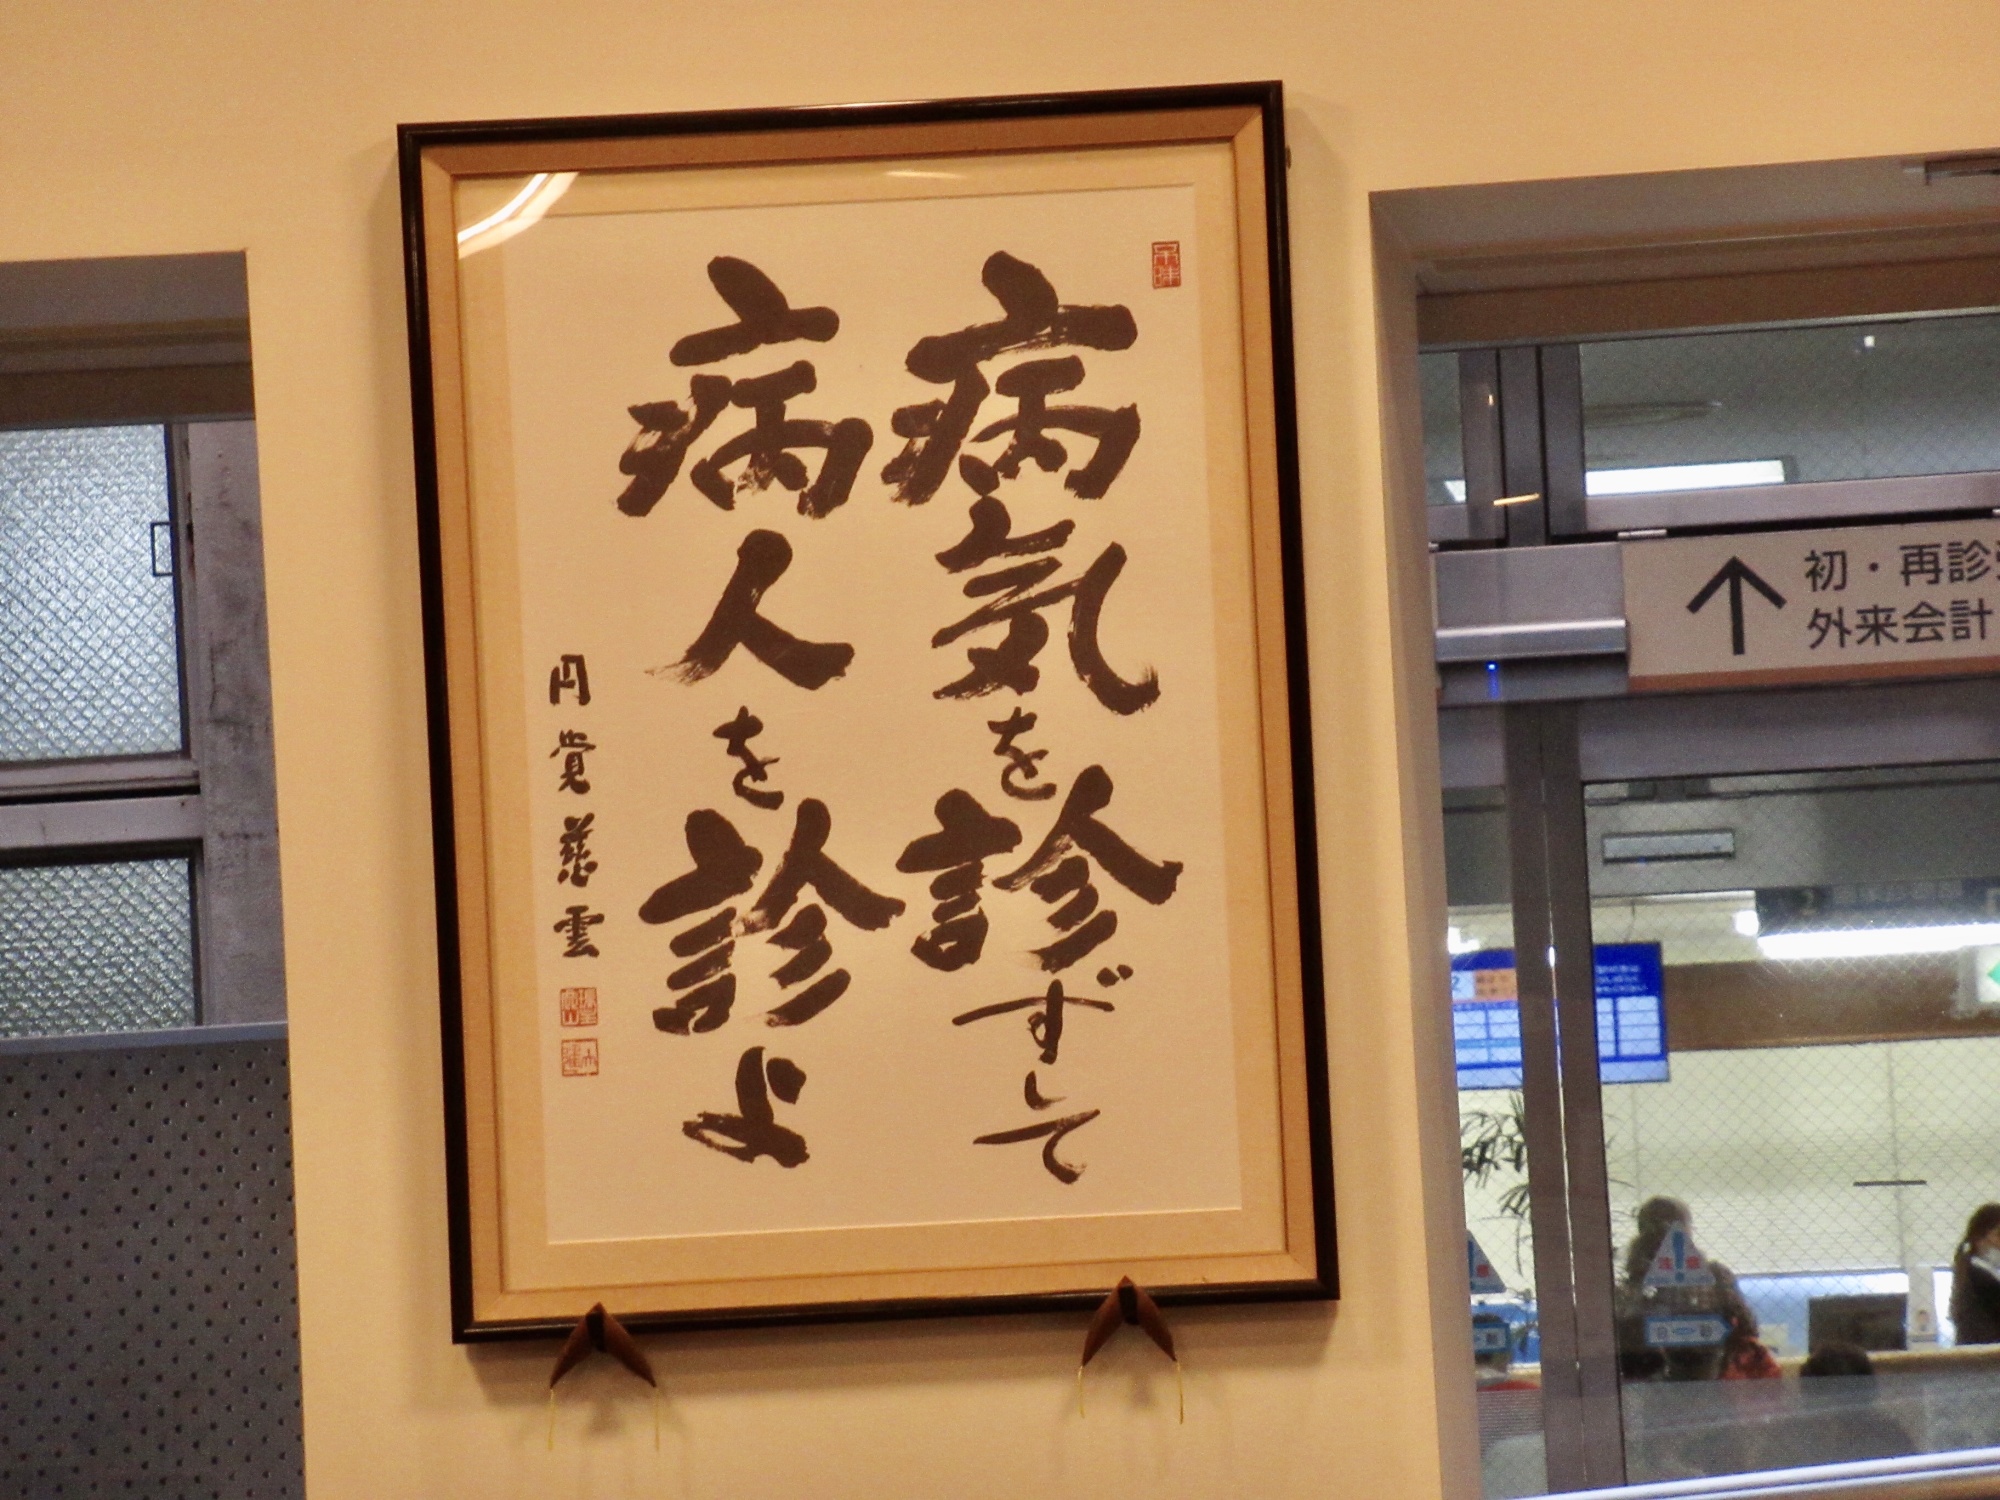 病気を診ずして
病人を診よ
円覚慈雲
初・再診受
外来会計
注意